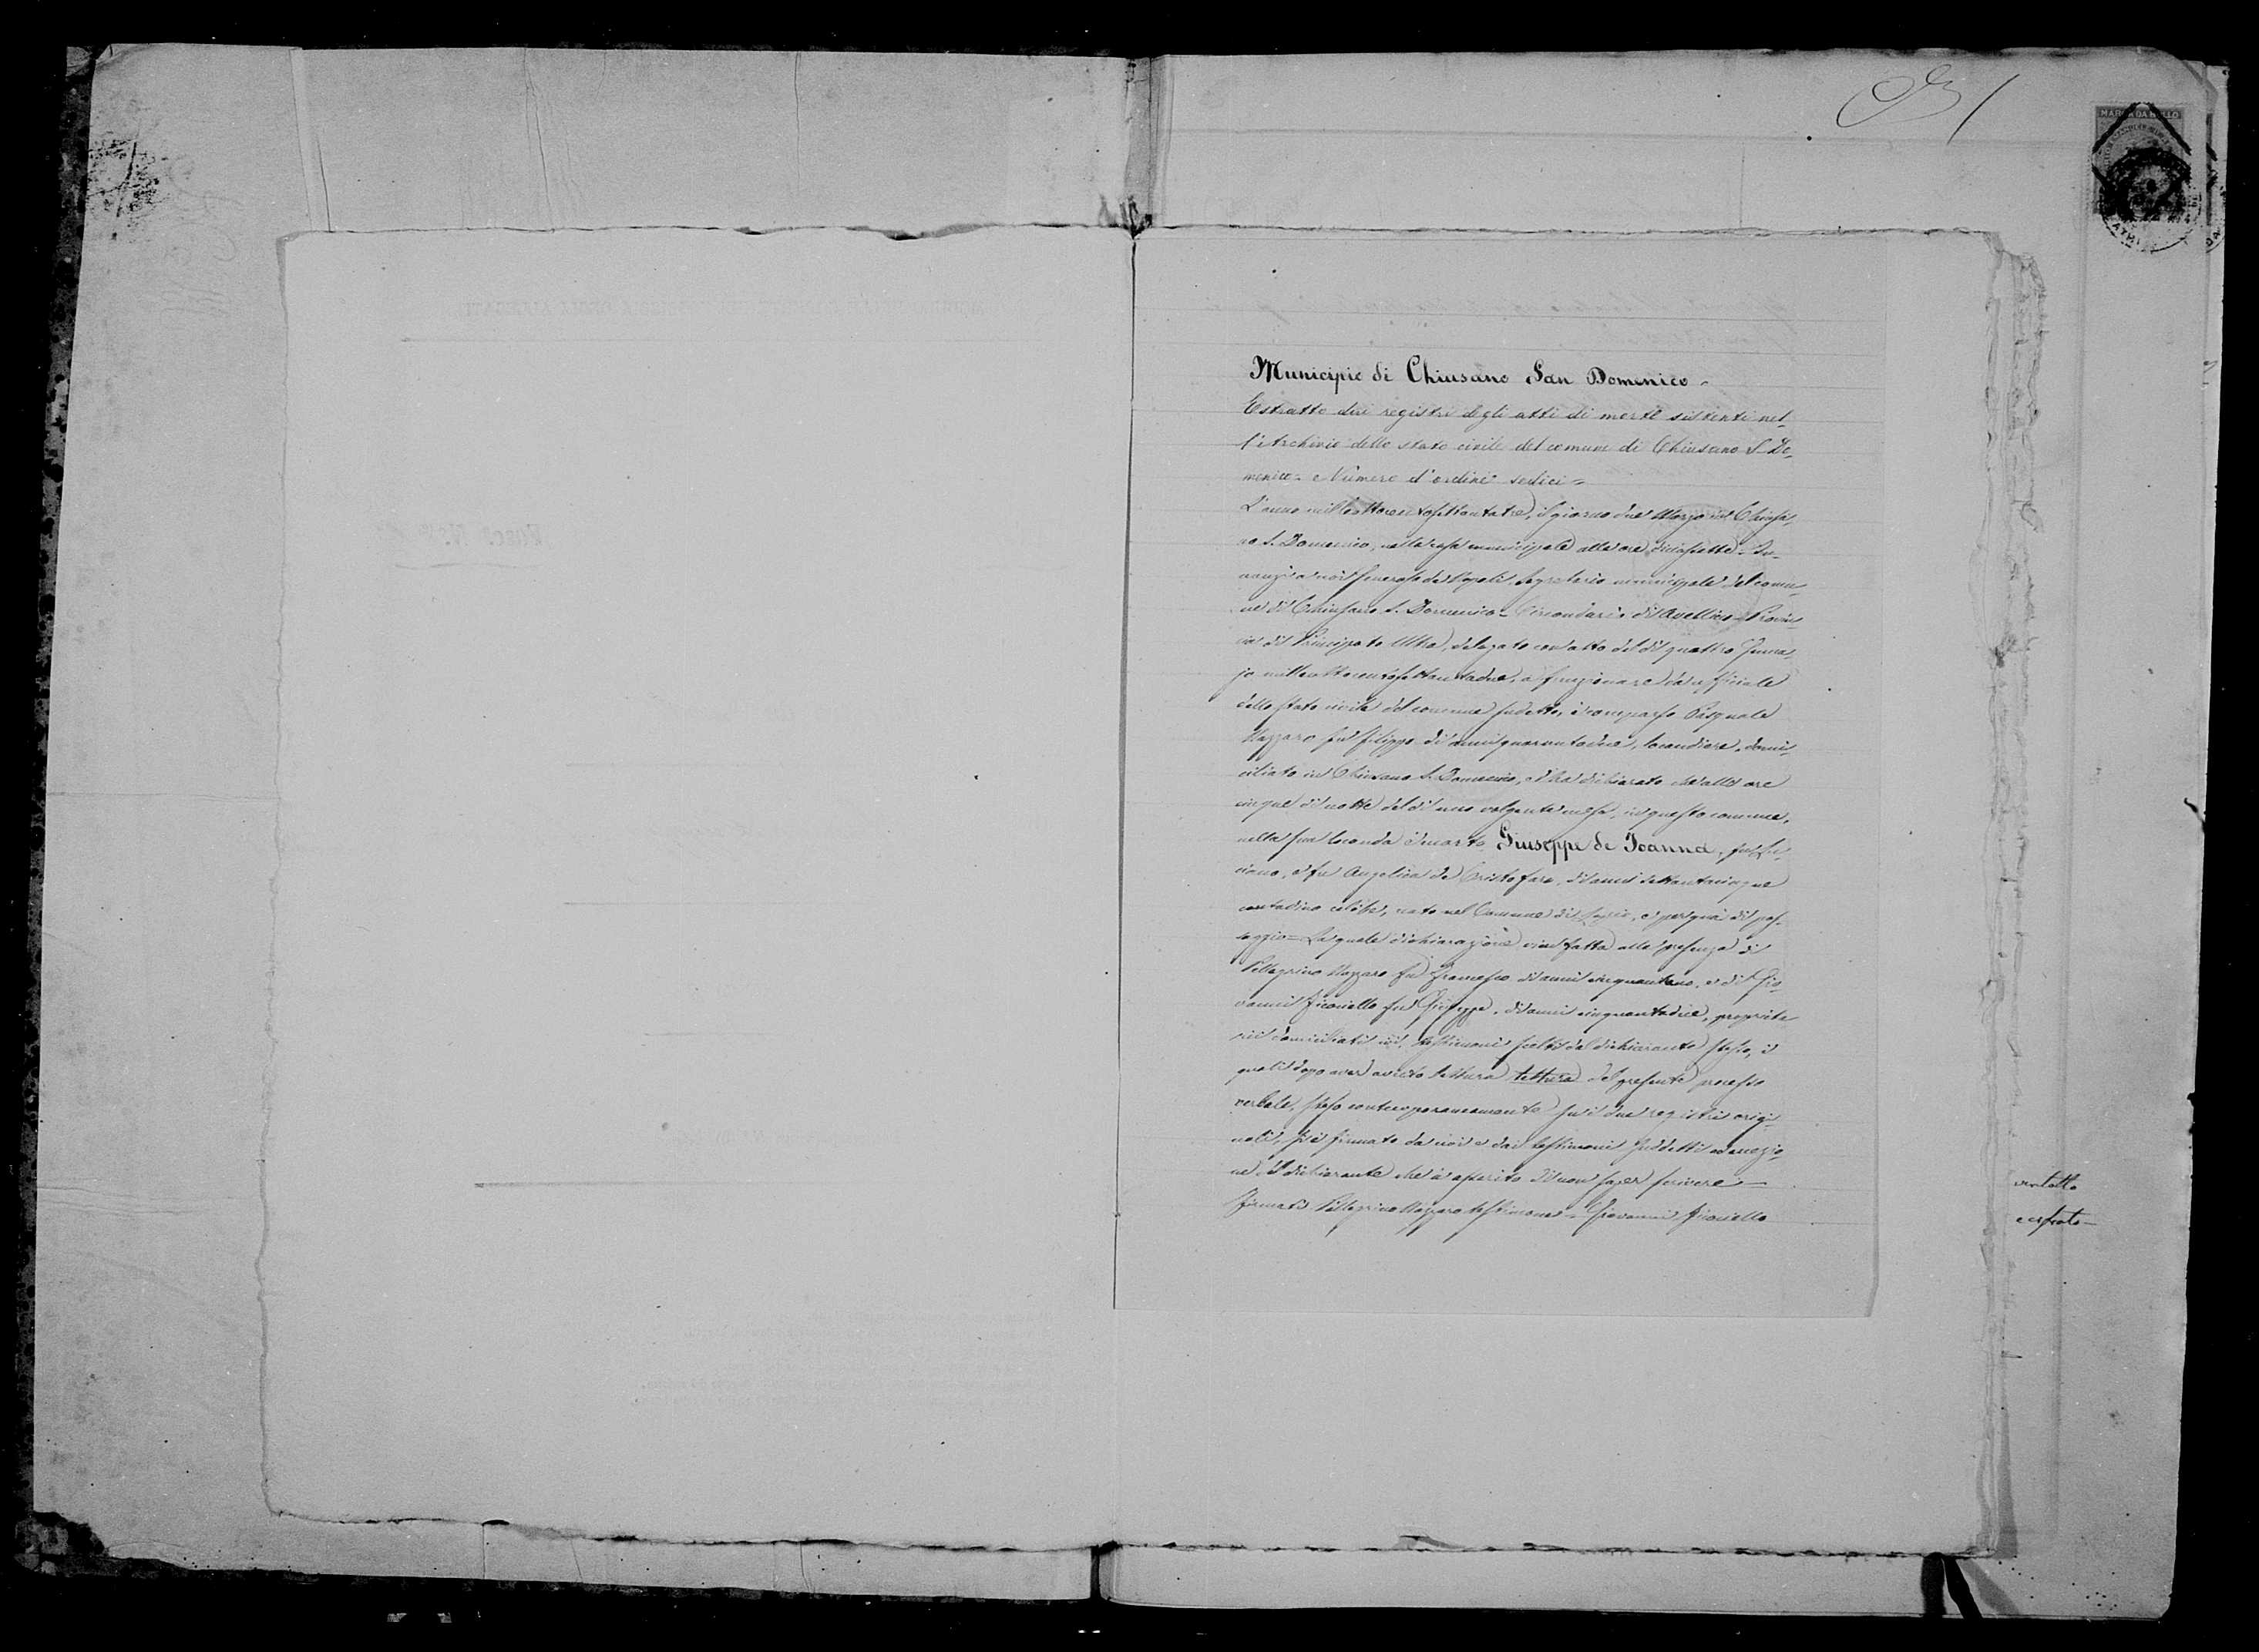 MARCA DA BOLLO
Municipio di Chiusano San Domenico -
Estratto dai registri degli atti di morte sistenti nel-
l'Archivio dello stato civile del comune di Chiusano S. Do-
menico - Numero d'ordine sedici =
L'anno milleottocentosettantatre, il giorno due Marzo in Chiusa-
no S. Domenico, nella casa municipale alle ore diciassette - In-
nanzi a noi Generoso de Napoli, Segretario municipale del comu-
ne di Chiusano S. Domenico - Circondario di Avellino - Provin-
cia di Principato Ultra, delegato con atto del dì quattro Genna-
jo milleottocentosettantadue, a funzionare da uffiziale
dello stato civile del comune sudetto, è comparso Pasquale
Nazzaro fu Filippo di anni quarantadue, locandiere, domi-
ciliato in Chiusano S. Domenico, e ha dichiarato che alle ore
cinque di notte del dì uno volgente mese, in questo comune,
nella sua locanda è morto Giuseppe de Joanna, fu
ciano, e fu Angelica de Cristofaro, di anni settantacinque
contadino celibe, nato nel Comune di e per qua di pas-
saggio - La quale dichiarazione vien fatta alla presenza di
Pellegrino Nazzaro fu Francesco di anni e di Gio-
vanni Ficoniello fu Giuseppe, di anni cinquantadue, proprieta
rii domiciliati ivi, testimoni scelti dal dichiarante stesso, i
quali dopo aver avuto lettura lettura del presente processo
verbale, steso contemporaneamente su i due registri origi-
nali, si è firmato da noi e dai testimoni suddetti ad eccezio-
ne il dichiarante che à asserito di non saper scrivere -
Firmati Pellegrino Nazzaro testimone - Giovanni Ficoniello